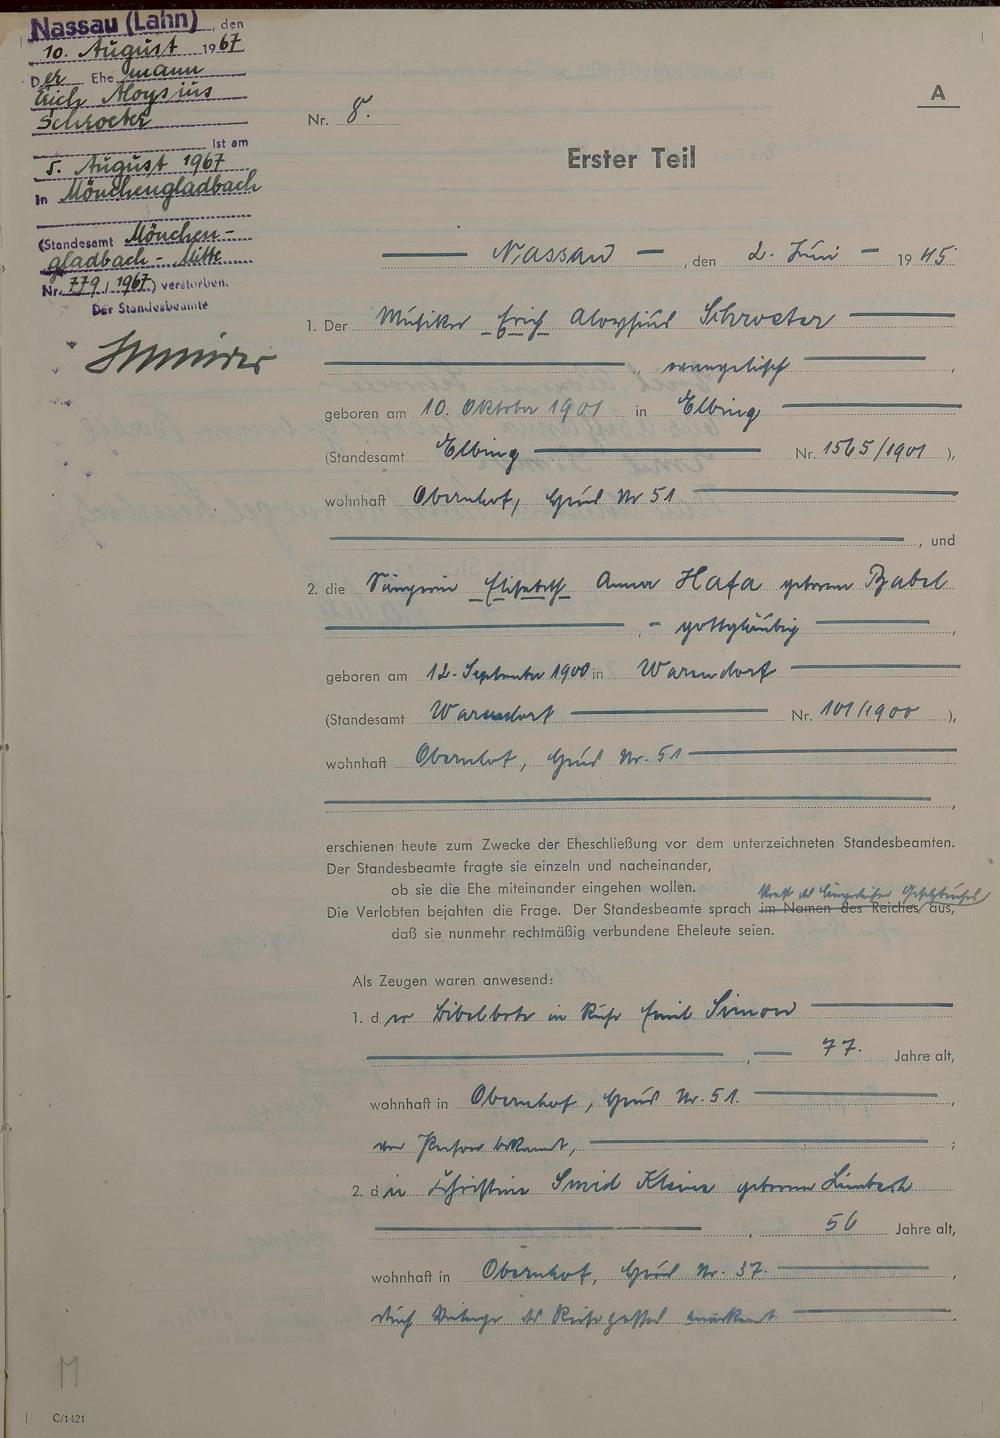 Nassau (Lahn), den
10. August 1967
Der Ehemann
Erich Aloysius
Schroeter
ist am
5. August 1967
in Mönchengladbach
(Standesamt Mönchen-
gladbach - Mitte
Nr. 779/1967) verstorben.
Der Standesbeamte
A
Nr. 8.
Erster Teil
Nassau, den 2. Juni 1945.
1. Der Musiker Erich Aloysius Schroeter
, evangelisch,
geboren am 10. Oktober 1901 in Elbing
(Standesamt Elbing Nr. 1565/1901),
wohnhaft Obernhof, Haus Nr 51
, und
2. die Sängerin Elisabeth Anna Hafa geborene Babel
, - gottgläubig,
geboren am 12. September 1900 in Warendorf
(Standesamt Warendorf Nr. 101/1900),
wohnhaft Obernhof, Haus Nr. 51
,
erschienen heute zum Zwecke der Eheschließung vor dem unterzeichneten Standesbeamten.
Der Standesbeamte fragte sie einzeln und nacheinander,
ob sie die Ehe miteinander eingehen wollen.
Kraft des bürgerlichen Gesetzbuches
Die Verlobten bejahten die Frage. Der Standesbeamte sprach im Namen des Reiches aus,
daß sie nunmehr rechtmäßig verbundene Eheleute seien.
Als Zeugen waren anwesend:
1. der Bibelbote in Ruhe Emil Simon
, 77. Jahre alt,
wohnhaft in Obernhof, Haus Nr. 51.,
von Person bekannt, ;
2. die Christine Smid Kleine geborene Limbach
, 56 Jahre alt,
wohnhaft in Obernhof, Haus Nr. 37.,
durch Vorlage des anerkannt
M
C/1421